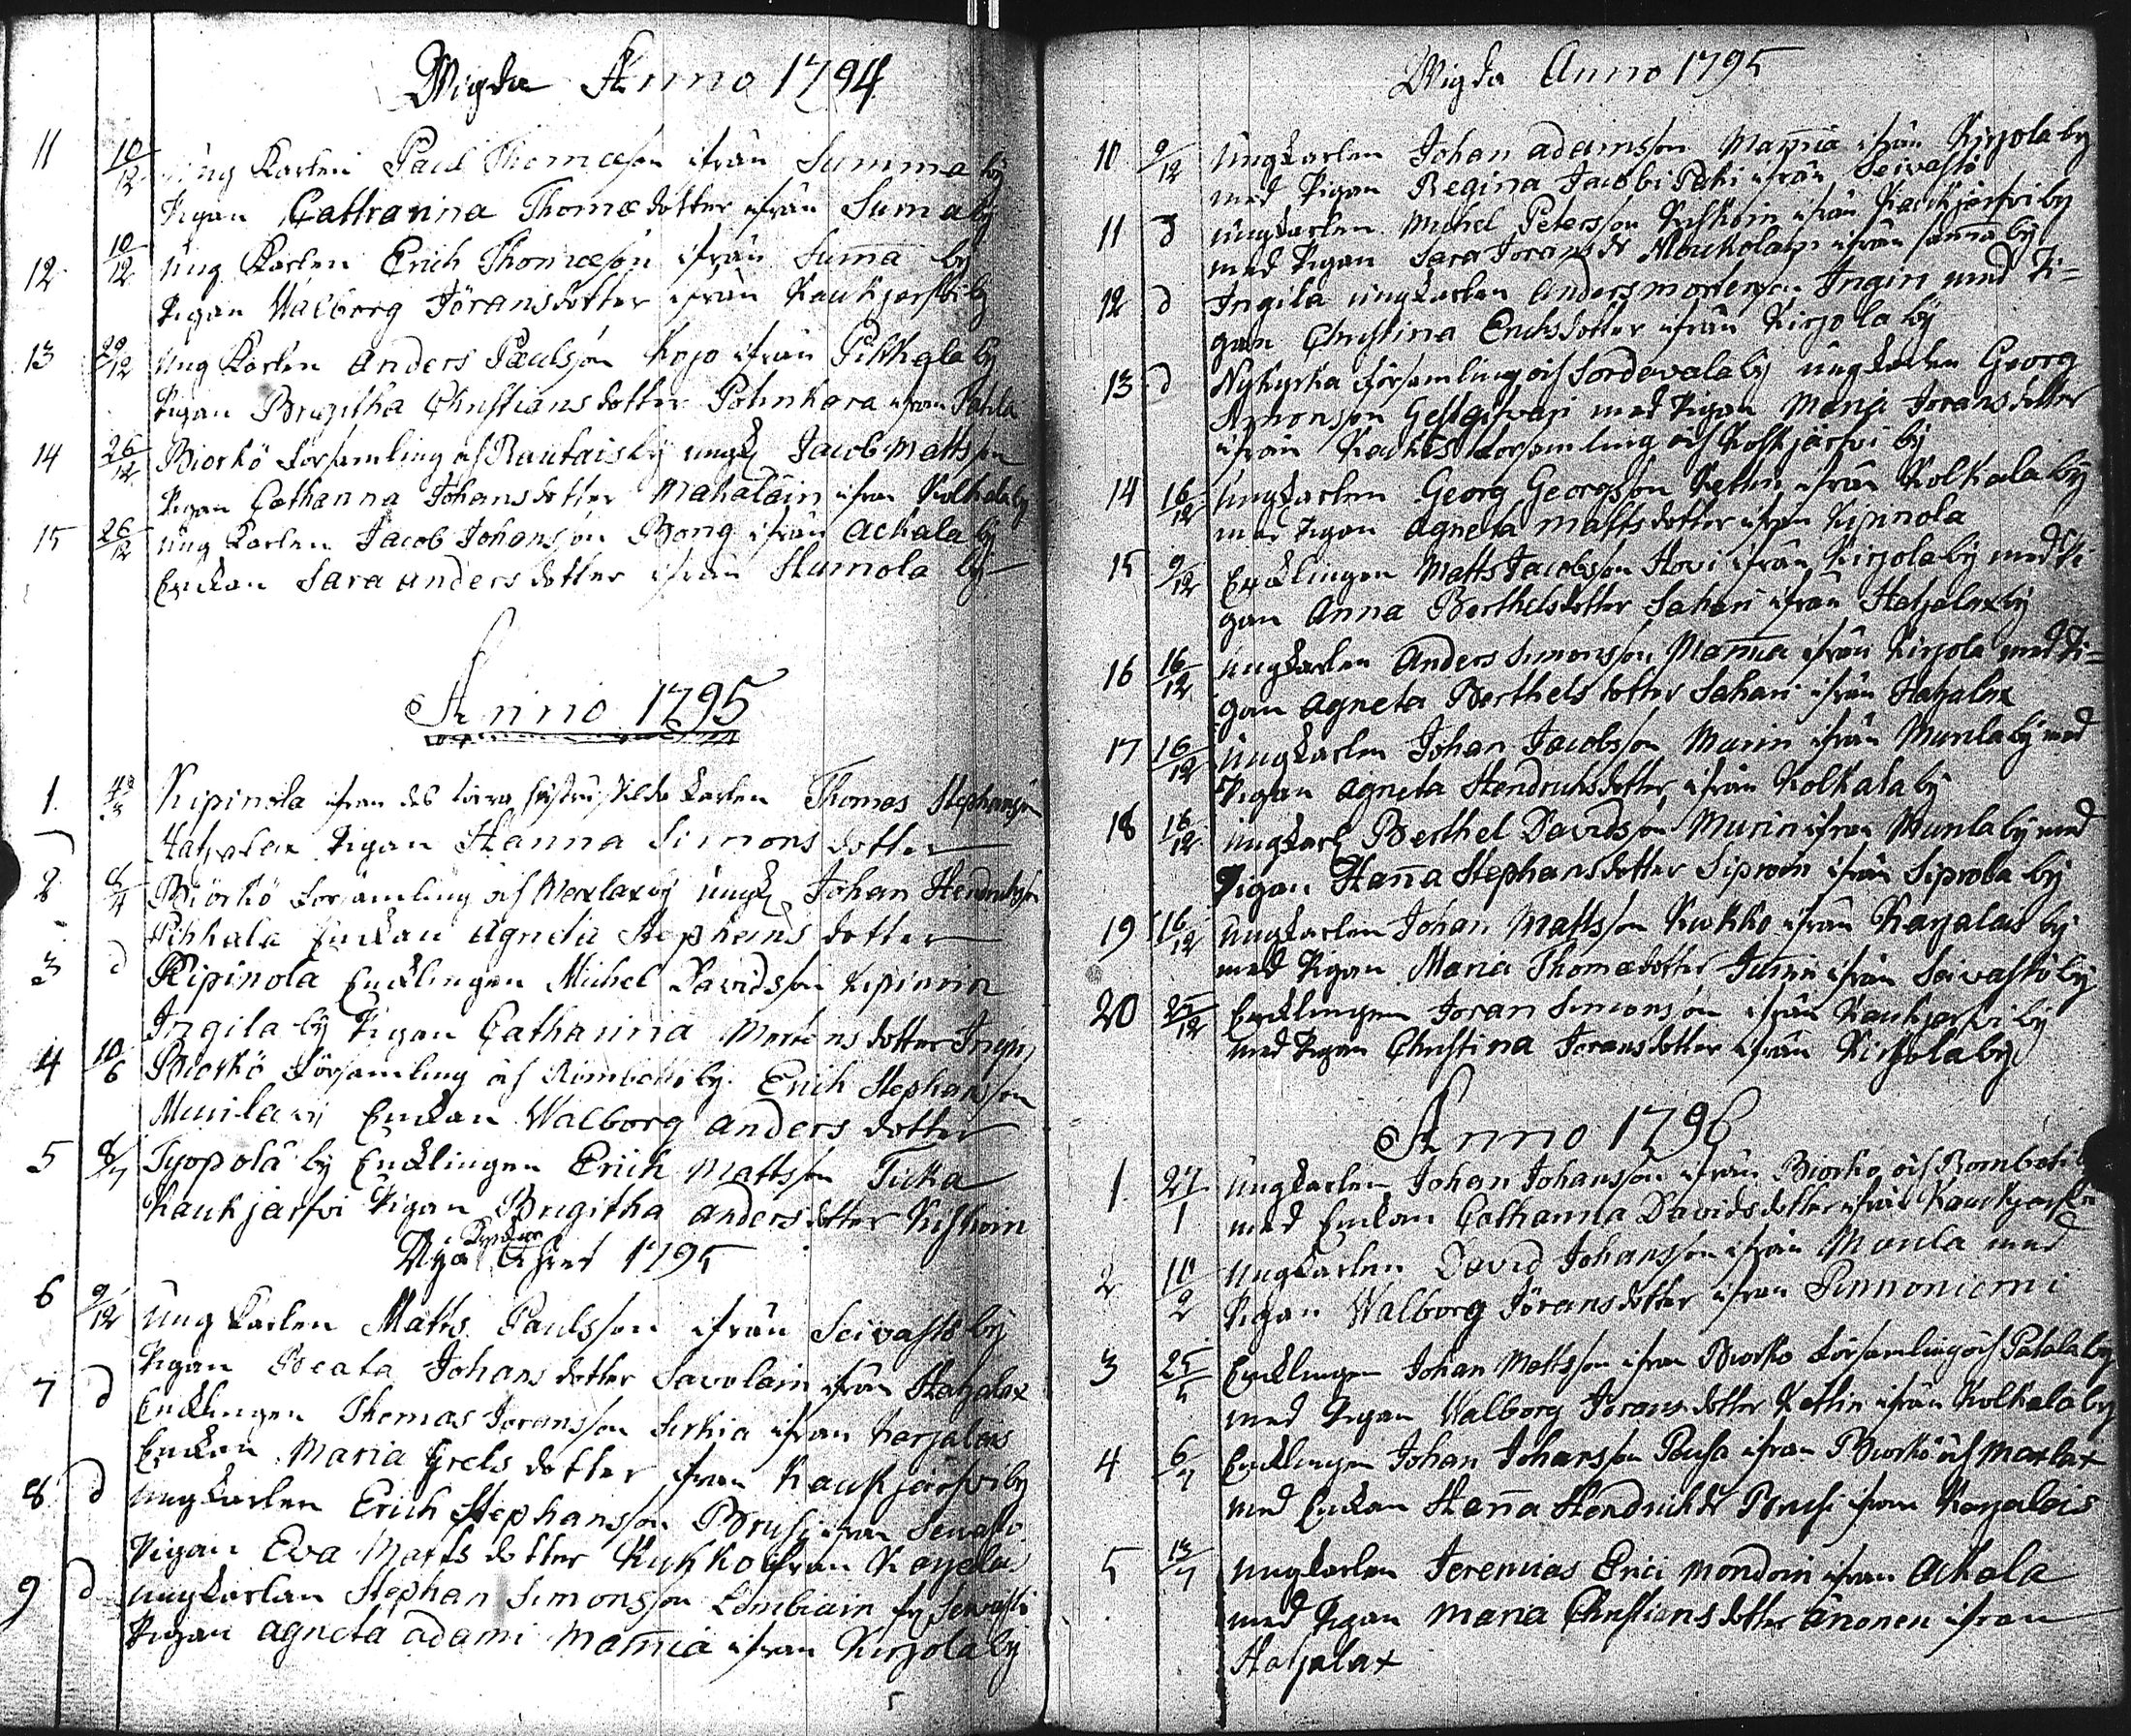 Wigda Anno 1794
11 10/12 Ung Karlen Paul Thomæson ifrån Summa by
Pigan Cathrarina Thomædotter ifrån Suma by
12 10/12 Ung Karlen Erich Thomæson ifrån Suma by
Pigan Walborg Jöransdotter ifrån Kaukjerfvi by
13 /12 Ung Karlen Anders Paulsson Kojo ifrån Pihkala by
Pigan Brigitha Christiansdotter ifrån
14 26/12 Biorkö Församling och Rautais by ungk Jacob Mattsson
Pigan Catharina Johansdotter Mahalain ifrån Kolkala by
15 26/12 Ung Karlen Jacob Johansson Bong ifrån Ackala by
Enckan Sara Andersdotter ifrån Humola by
Anno 1795
1 Kipinola ifrån Karlen Thomas Stephansson
Hatjalax Pigan Hanna Simonsdotter
2 8/4 Biörkö Församling och Maxlax by ungk Johan Hendrichsson
Pihkala Enckan Agneta Stephansdotter
3 d Kipinola Encklingen Michel Davidsson Kipinoin
Ingila by Pigan Catharina Mortensdotter Ingin
4 10/6 Biorkö Församling och Rombotti by Erich Stephansson
Munila by Enckan Walborg Andersdotter
5 8/7 Tyopola by Encklingen Erich Mattsson Ticka
Kaukjarfvi Pigan Brigitha Andersdotter Kiskoin
Nya Kyrckoåhret 1795
6 9/12 Ung Karlen Matts Paulsson ifrån Seivastö by
Pigan Beata Johansdotter Savolain ifrån Hatjalax
7 d Encklingen Thomas Joransson Sirkia ifrån Karjalais
Enckan Maria Grelsdotter ifrån Kaukjärfvi by
8 d Ungkarlen Erich Stephansson Brusi ifrån Seivastö
Pigan Eva Mattsdotter Kukko ifrån Karjalais
9 d Ungkarlen Stephan Simonsson Lembiain Seivastö
Pigan Agneta Adami Mannia ifrån Kirjola by
Wigda Anno 1795
10 9/12 Ungkarlen Johan Adamsson Mannia ifrån Kirjola by
med Pigan Regina Jacobi Paki ifrån Seivastö
11 d Ungkarlen Michel Petersson Kiskoin ifrån Kaukjärfvi by
med Pigan Sara Joransdr Moukolain ifrån samma by
12 d Ingila ungkarlen Anders Mortenson Ingin med Pi=
gan Christina Erichsdotter ifrån Kirjola by
13 d Nykyrka Församling och Sordevala by ungkarlen Georg
Simonsson Gestgifvari med Pigan Maria Joransdotter
ifrån Församling och Koskjärfvi by
14 16/12 Ungkarlen Georg Georgsson Kettin ifrån Kolkala by
med Pigan Agneta Mattsdotter ifrån Kipinola
15 9/12 Encklingen Matts Jacobsson Hovi ifrån Kirjola by med Pi
gan Anna Berthelsdotter Sahari ifrån Hatjalax by
16 16/12 Ungkarlen Anders Simonsson Mannia ifrån Kirjola med Pi=
gan Agneta Berthelsdotter Sahari ifrån Hatjalax
17 16/12 Ungkarlen Johan Jacobsson Murin ifrån Munla by med
Pigan Agneta Hendrichsdotter ifrån Kolkala by
18 16/12 Ungkarl Berthel Davidsson Murin ifrån Munla by med
Pigan Hanna Stephansdotter Siproin ifrån Siprola by
19 16/12 Ungkarlen Johan Mattsson Kukko ifrån Karjalais by
med Pigan Maria Thomædotter ifrån Seivastö by
20 25/12 Encklingen Joran Simonson ifrån Kaukjarfvi by
med Pigan Christina Joransdotter ifrån Kirjola by
Anno 1796
1 27/1 Ungkarlen Johan Johansson ifrån Biorko och Rombotti
med Enckan Catharina Davidsdotter ifrån Kaukjarfvi
2 10/2 Ungkarlen David Johansson ifrån Munla med
Pigan Walborg Jöransdotter ifrån Pinnoniemi
3 25/ Encklingen Johan Mattsson ifrån Biorko Församling och Patala by
med Pigan Walborg Joransdotter Kettin ifrån Kolkala by
4 6/7 Encklingen Johan Johansson Pousa ifrån Biorkö och Maxlax
med Enckan Hanna Hendrichsdr Brusi ifrån Karjalais
5 13/7 Ungkarlen Jeremias Erici Mondoin ifrån Ackala
med Pigan Maria Christiansdotter Änonen ifrån
Hatjalax